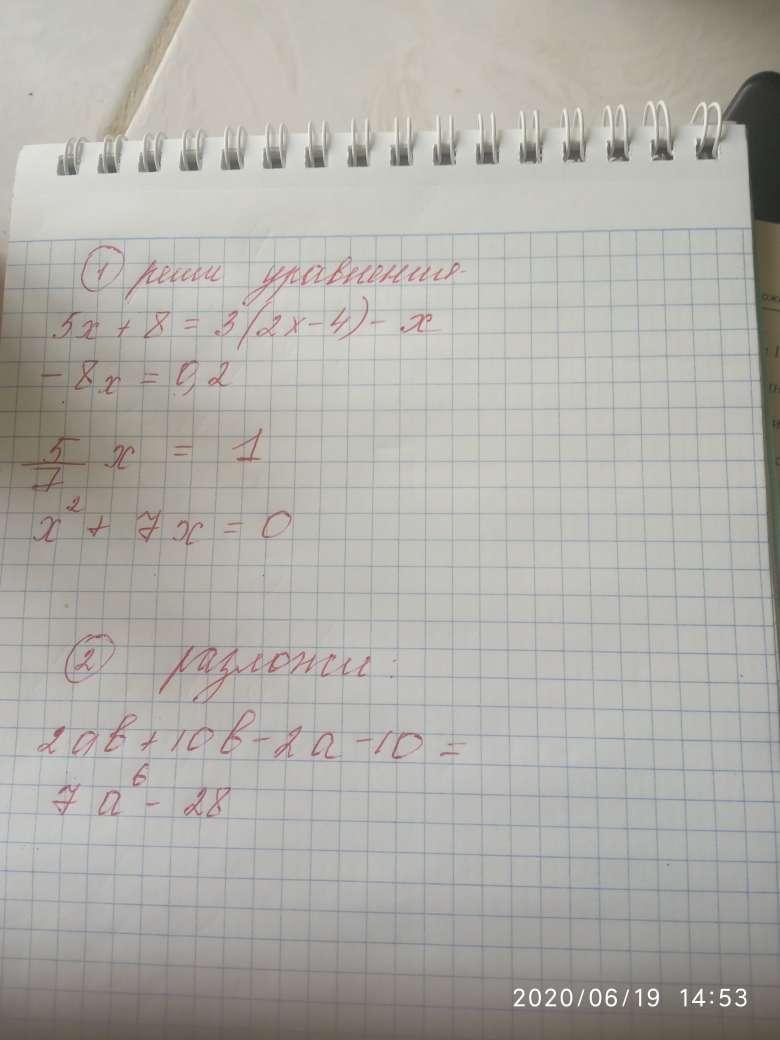 ① реши уравнения.
5x + 8 = 3(2x - 4) - x
- 8x = 0,2
5/7 x = 1
x² + 7x = 0
② разложи:
2ab + 10b - 2a - 10 =
7a⁶ - 28
2020/06/19 14:53